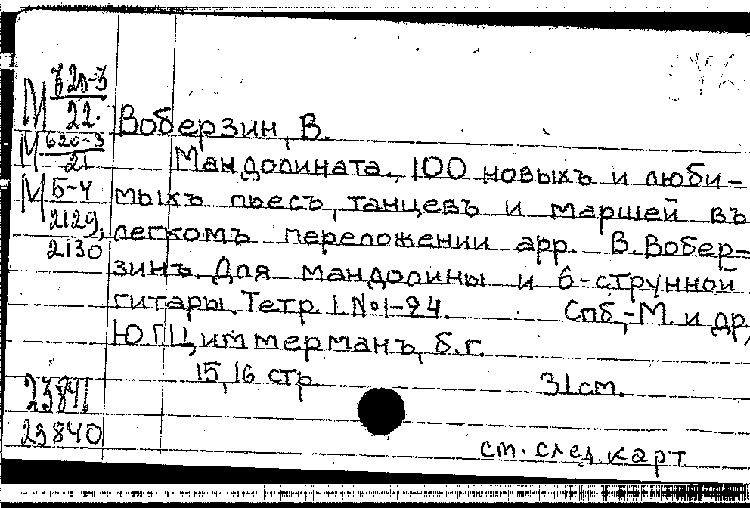 М 62л-3
22.
Воберзин, В.
М 620-3
21
Мандолината. 100 новыхъ и люби-
М Б-4
2129,
2130
мыхъ пьесъ, танцевъ и маршей въ
легкомъ переложении арр. В. Вобер-
зинъ. Для мандолины и 6-струнной
гитары. Тетр. 1. №1-24. Спб,-М. и др,
Ю.Г.Циммерманъ, б.г.
15, 16 стр. 31 см.
23841
23840
ст. след. карт